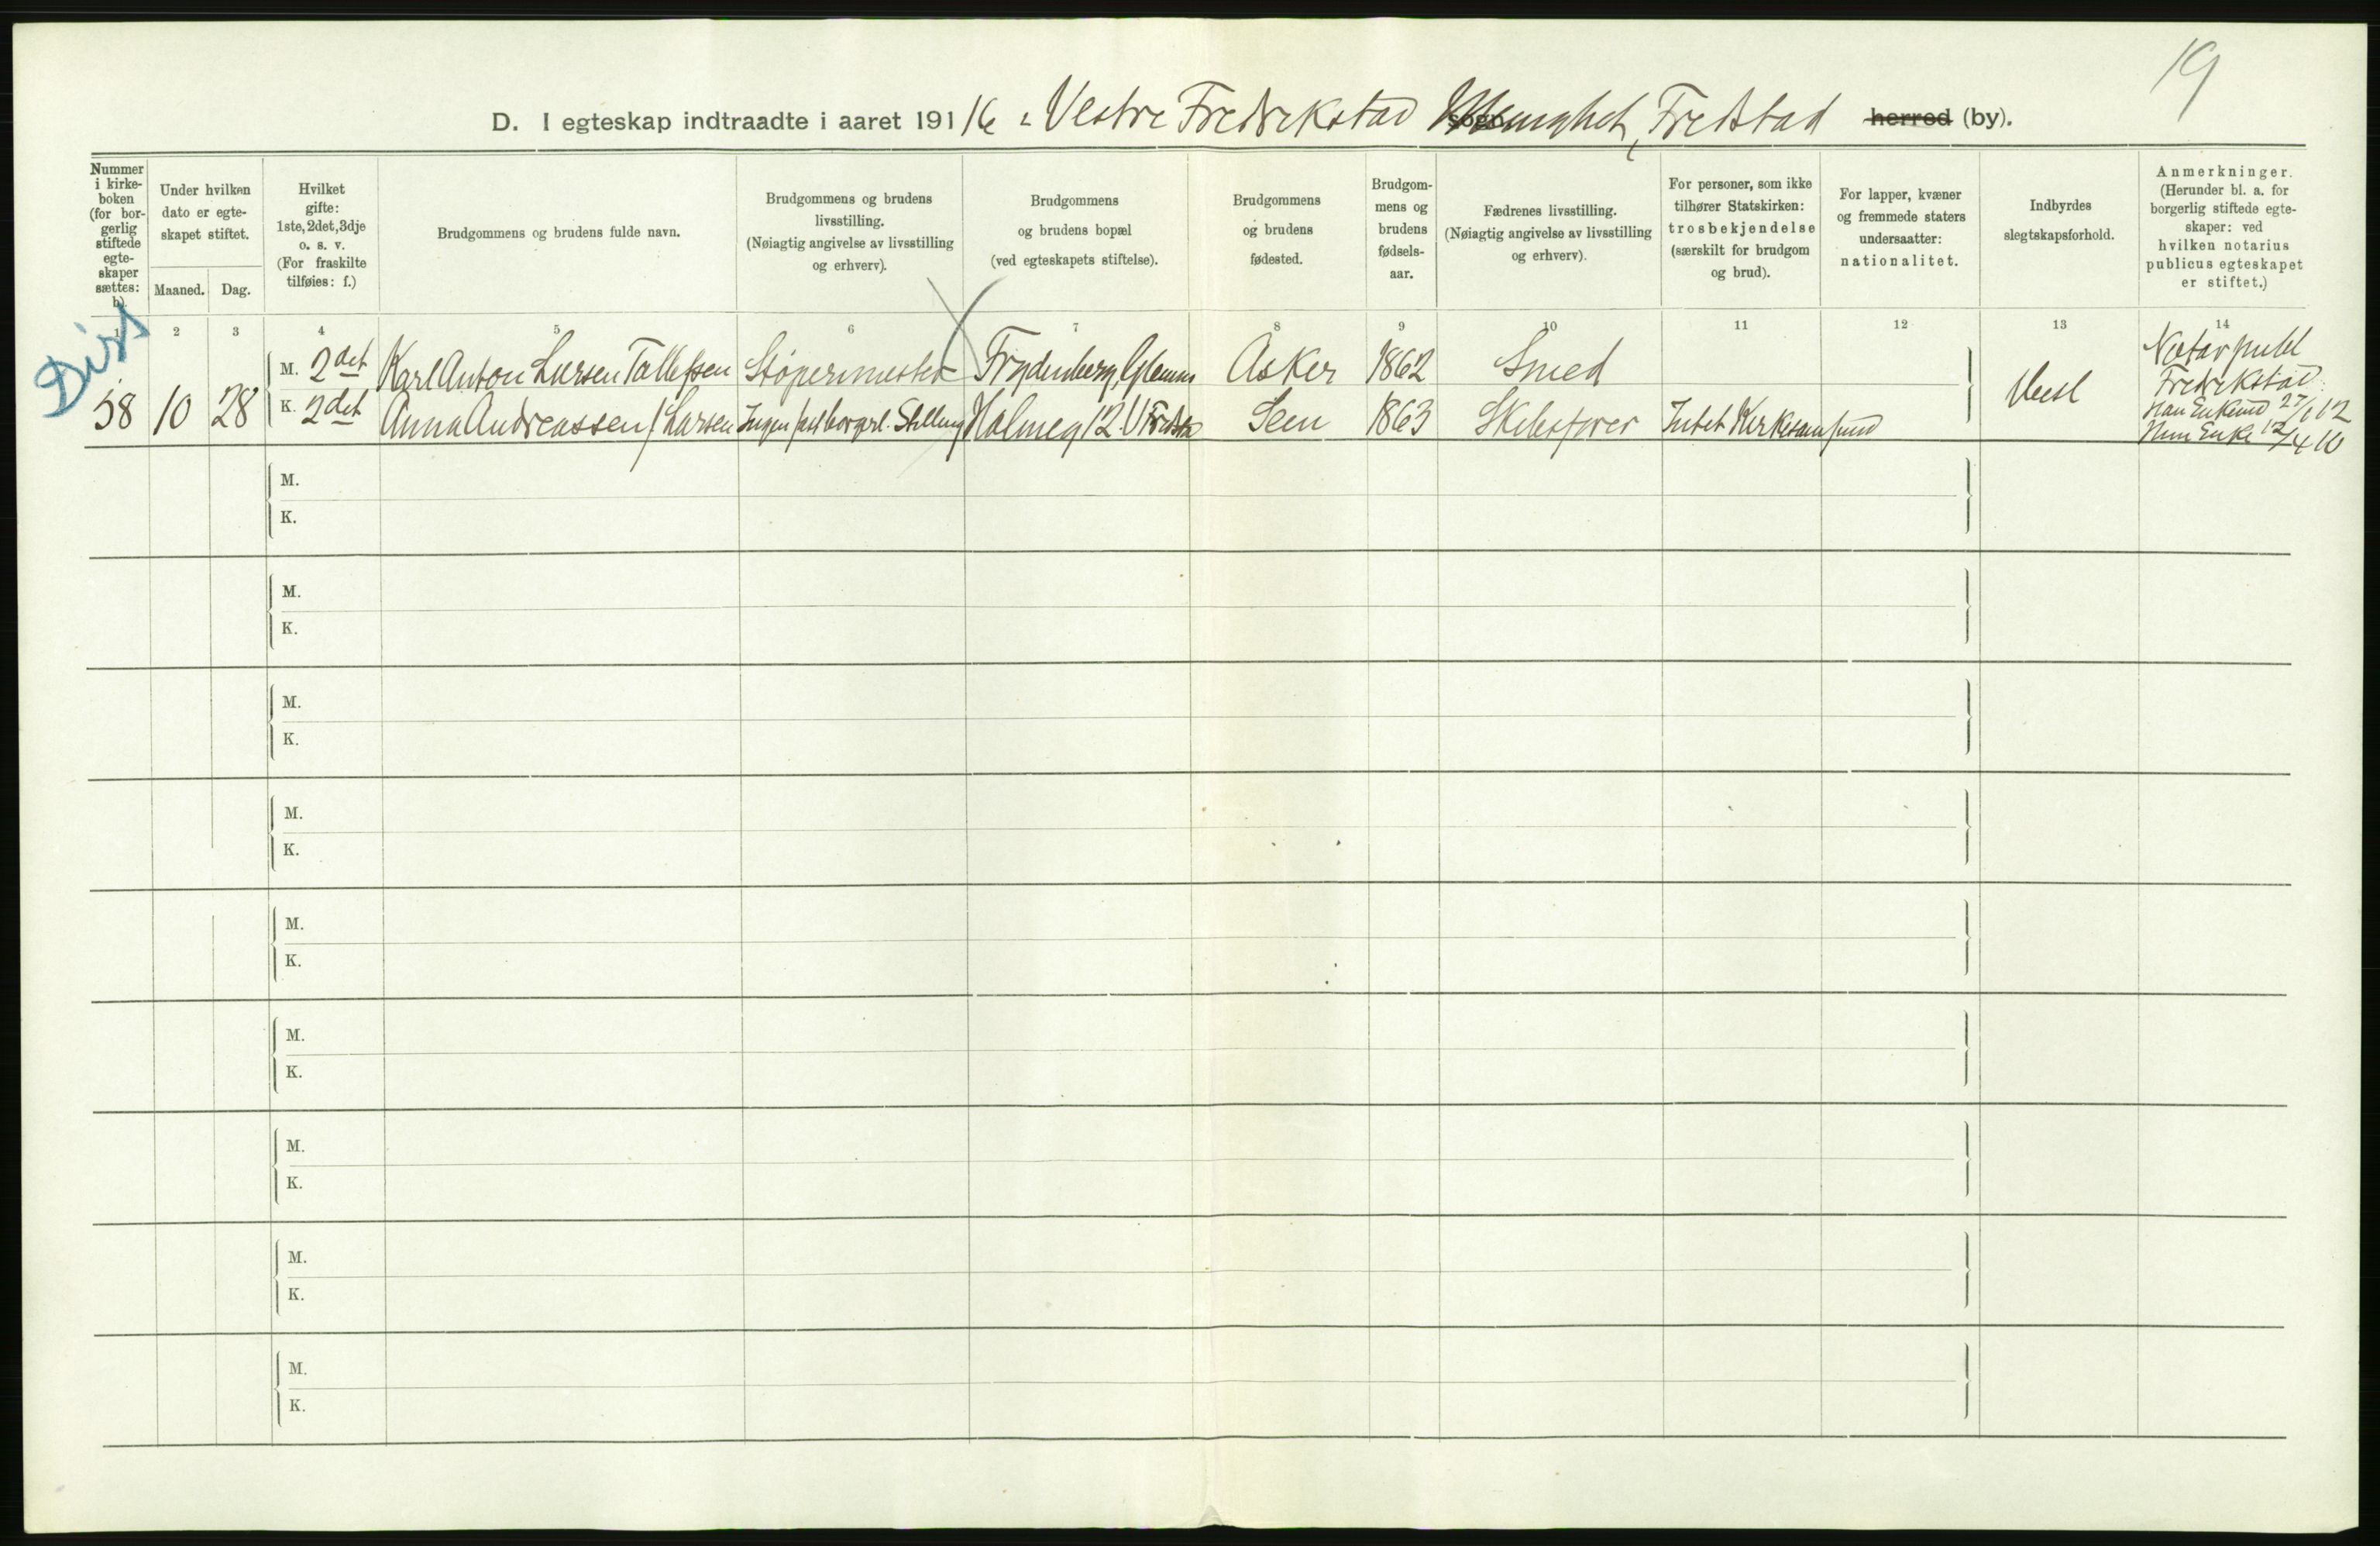 19
D. I egteskap indtraadte i aaret 1916 i Vestre Fredrikstad sogn Menighet, Fredstad herred (by).
Nummer i kirke-boken (for bor-gerlig stiftede egte-skaper sættes: b).
Under hvilken dato er egte-skapet stiftet.
Maaned. Dag.
Hvilket gifte: 1ste, 2det, 3dje o. s. v. (For fraskilte tilføies: f.)
Brudgommens og brudens fulde navn.
Brudgommens og brudens livsstilling. (Nøiagtig angivelse av livsstilling og erhverv).
Brudgommens og brudens bopæl (ved egteskapets stiftelse).
Brudgommens og brudens fødested.
Brudgom-mens og brudens fødsels-aar.
Fædrenes livsstilling. (Nøiagtig angivelse av livsstilling og erhverv).
For personer, som ikke tilhører Statskirken: trosbekjendelse (særskilt for brudgom og brud).
For lapper, kvæner og fremmede staters undersaatter: nationalitet.
Indbyrdes slegtskapsforhold.
Anmerkninger. (Herunder bl. a. for borgerlig stiftede egte-skaper: ved hvilken notarius publicus egteskapet er stiftet.)
1 2 3 4 5 6 7 8 9 10 11 12 13 14
Diss
M. 2det Karl Anton Larsen Tollefsen Støpermester Frydenberg, Glemm Asker 1862 Smed
58 10 28 K. 2det Anna Andreassen f Larsen Ingen fast borgerl. Stilling Holmeg 12 V Fredsta Seem 1863 Skibsfører Intet Kirkesamfund
Notar publ
Fredrikstad
Han Enkemd 27/1 12
Hun Enke 12/4 10
M.
K.
M.
K.
M.
K.
M.
K.
M.
K.
M.
K.
M.
K.
M.
K.
M.
K.